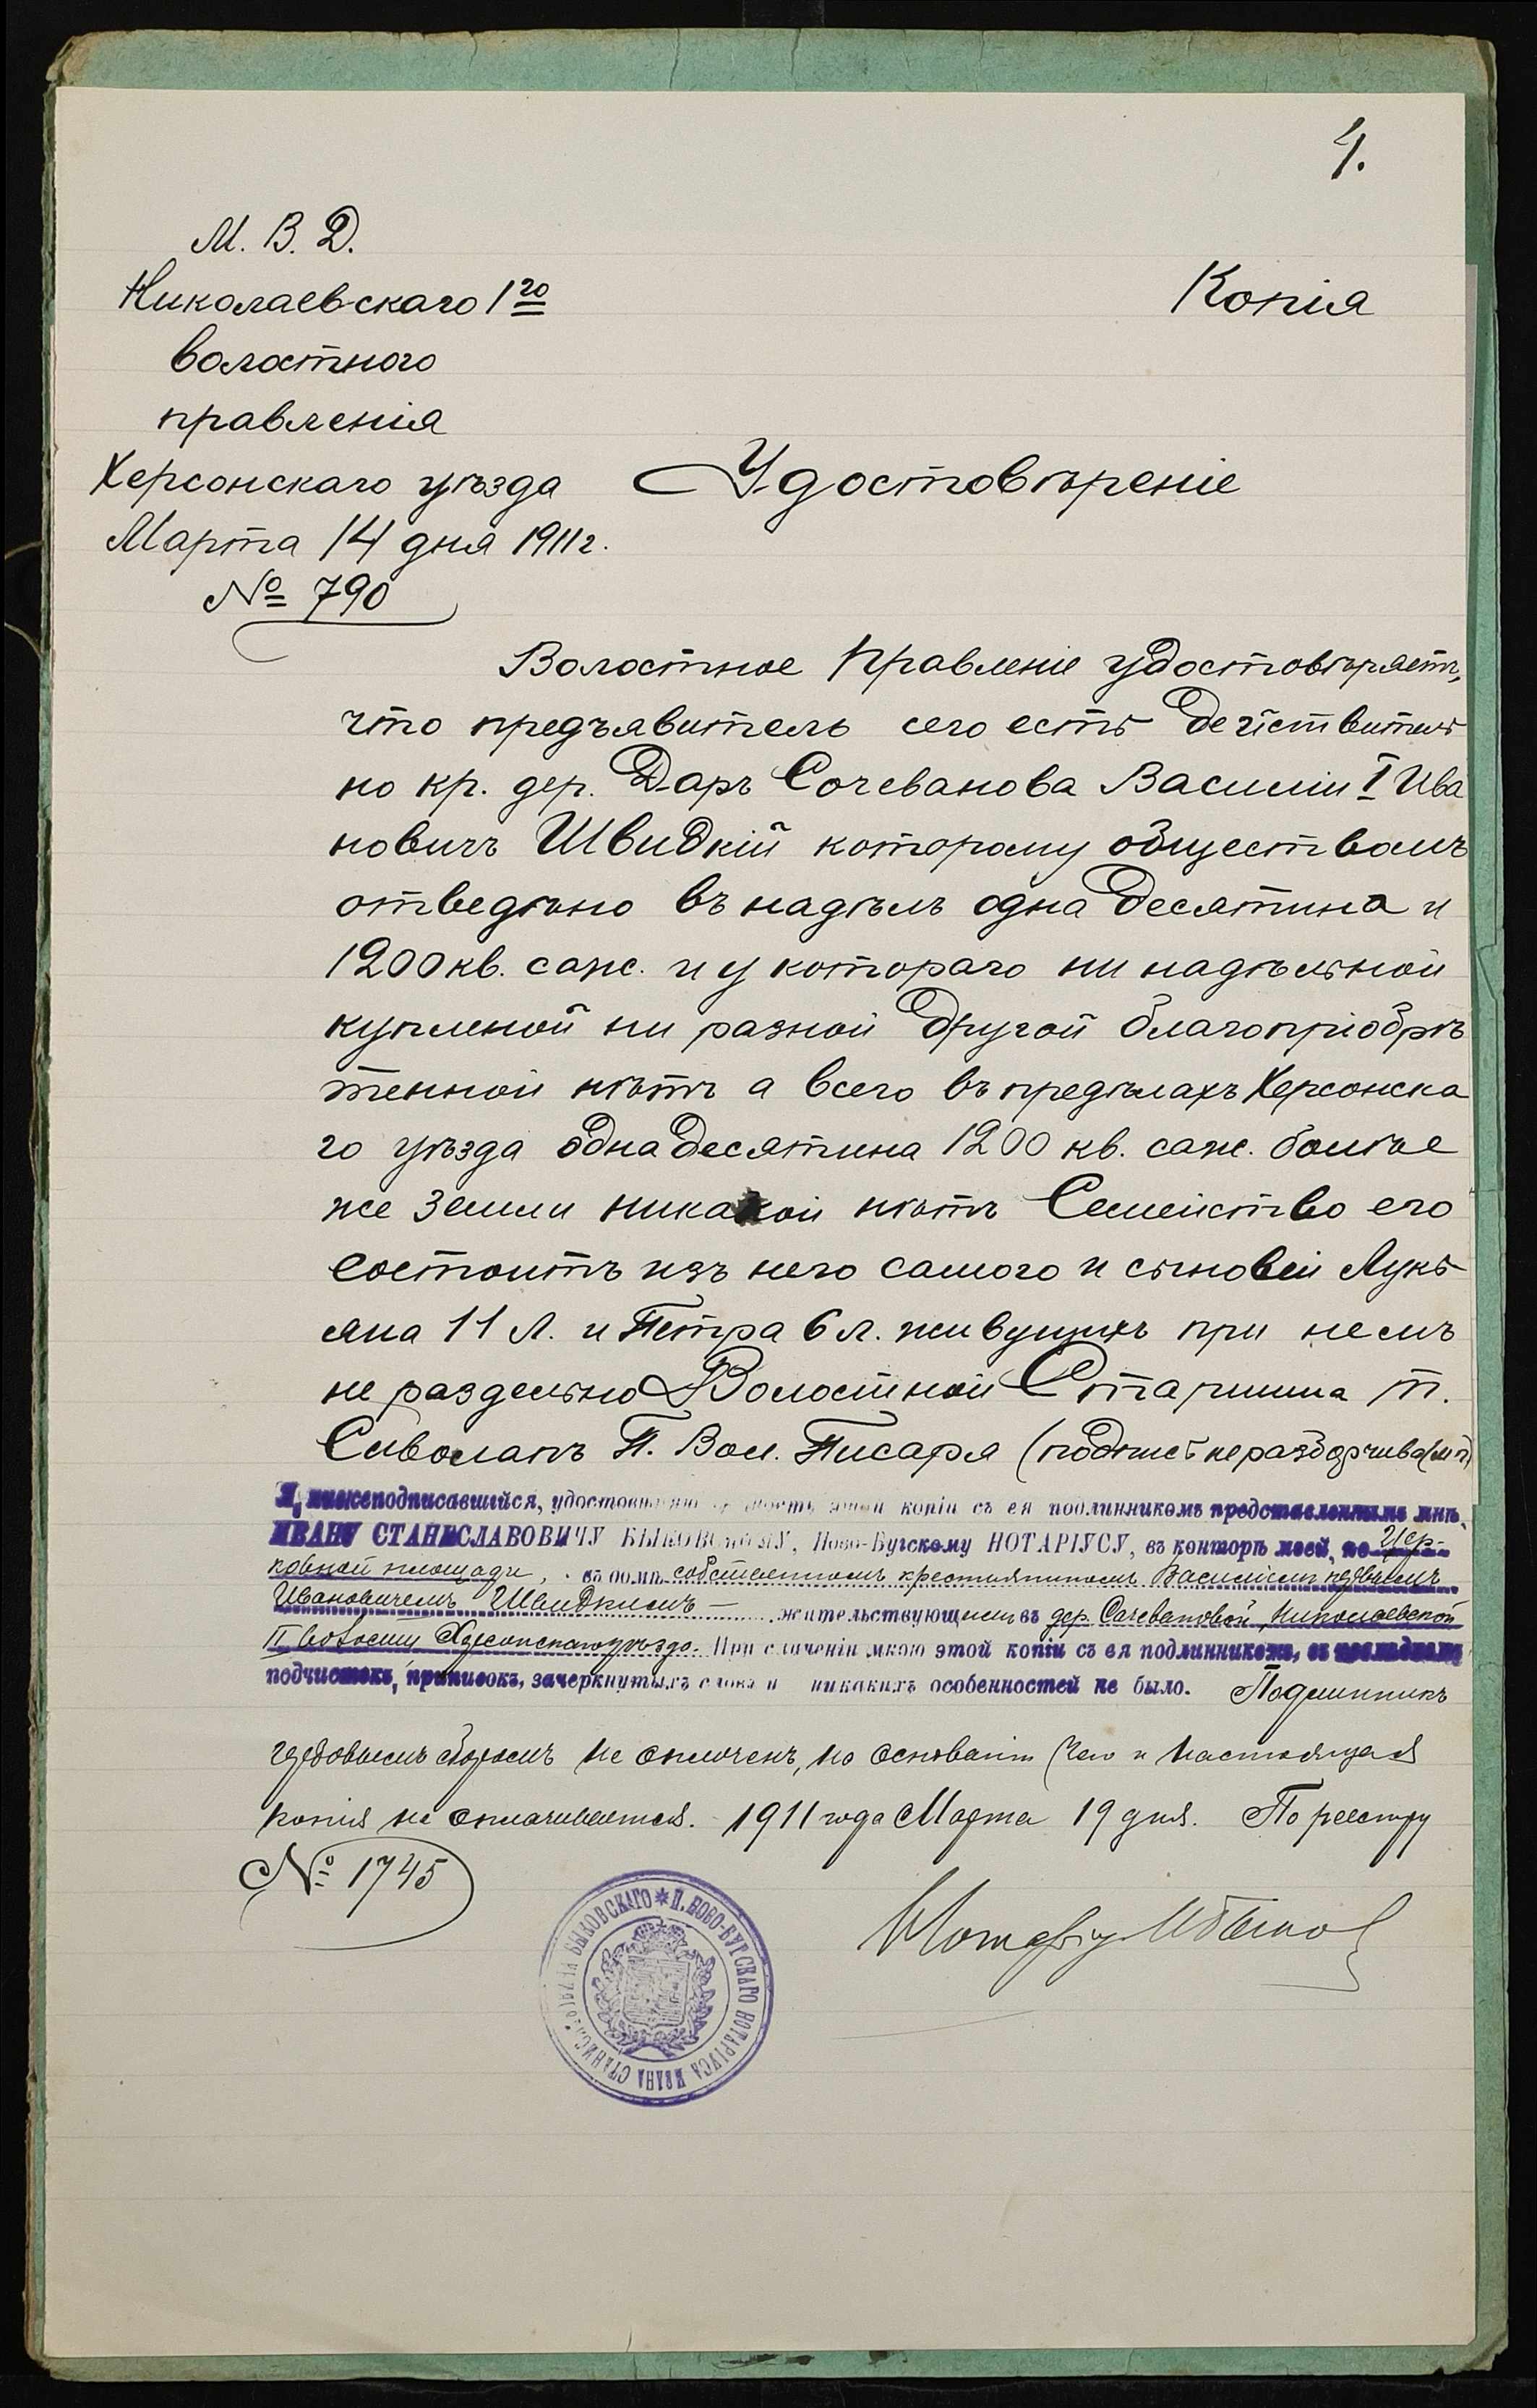 4.
М. В. Д.
Николаевскаго 1го
волостного
правленія
Херсонскаго уѣзда
Марта 14 дня 1911 г.
№ 790
Копія
Удостовѣреніе
Волостное Правленіе удостовѣряетъ,
что предъявитель сего есть действитель
но кр. дер. Даръ Сочеванова Василій I Ива
новичъ Швидкій которому обществомъ
отведѣно въ надѣлъ одна десятина и
1200 кв. саж. и у котораго ни надѣльной
купленой ни разной другой благопріобрѣ
тенной нѣтъ а всего въ предѣлахъ Херсонска
го уѣзда одна десятина 1200 кв. саж. болѣе
же земли никакой нѣтъ Семейство его
состоитъ изъ него самого и сыновей Лукь
яна 11 л. и Петра 6 л. живущихъ при немъ
не раздельно Волостной Старшина Т.
Сиволапъ П. Вол. Писаря (подпись неразборчива)
Я, нижеподписавшійся, удостовѣряю вѣрность этой копіи съ ея подлинникомъ представленнымъ мнѣ,
ИВАНУ СТАНИСЛАВОВИЧУ БЫКОВСКОМУ, Ново-Бугскому НОТАРІУСУ, въ конторѣ моей, по Цер-
ковной площади, въ домѣ собственномъ крестьяниномъ Василіемъ первымъ
Ивановичемъ Швидкимъ — жительствующимъ въ дер. Сочевановой, Николаевской
II волости Херсонскаго уѣзда. При сличеніи мною этой копіи съ ея подлинникомъ, въ послѣднемъ
подчистокъ, приписокъ, зачеркнутыхъ словъ и никакихъ особенностей не было. Подлинникъ
гербовымъ сборомъ не оплоченъ, на основаніи чего и настоящая
копія не оплачивается. 1911 года Марта 19 дня. По реестру
№ 1745
Нотаріусъ
* П. НОВО-БУГСКАГО НОТАРІУСА ИВАНА СТАНИСЛАВОВИЧА БЫКОВСКАГО